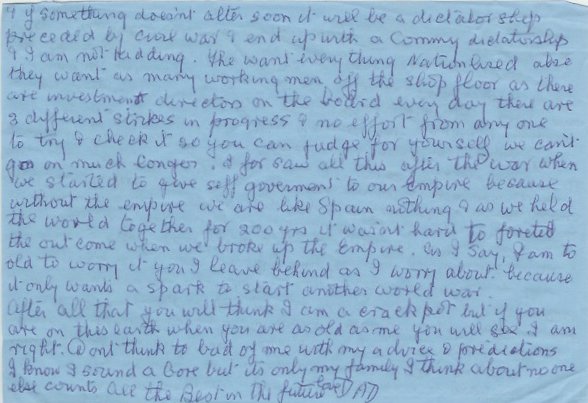 & if something doesn't alter soon it will be a dictatorship
preceded by civil war & end up with a Commy dictatorship
& I am not kidding. The want everything Nationlised also
they want as many working men off the shop floor as there
are investment directors on the board every day there are
3 different strikes in progress & no effort from any one
to try & check it so you can judge for yourself we can't
go on much longer. I for saw all this after the war when
we started to give self goverment to our empire because
without the empire we are like Spain nothing & as we held
the world together for 200 yrs it wasn't hard to foretell
the out come when we broke up the Empire. As I say, I am to
old to worry it you I leave behind as I worry about because
it only wants a spark to start another world war.
After all that you will think I am a crack pot but if you
are on this earth when you are as old as me you will see I am
right. Dont think to bad of me with my advice & predictions
I know I sound a bore but its only my family I think about no one
else counts all the Best in the future love DAD